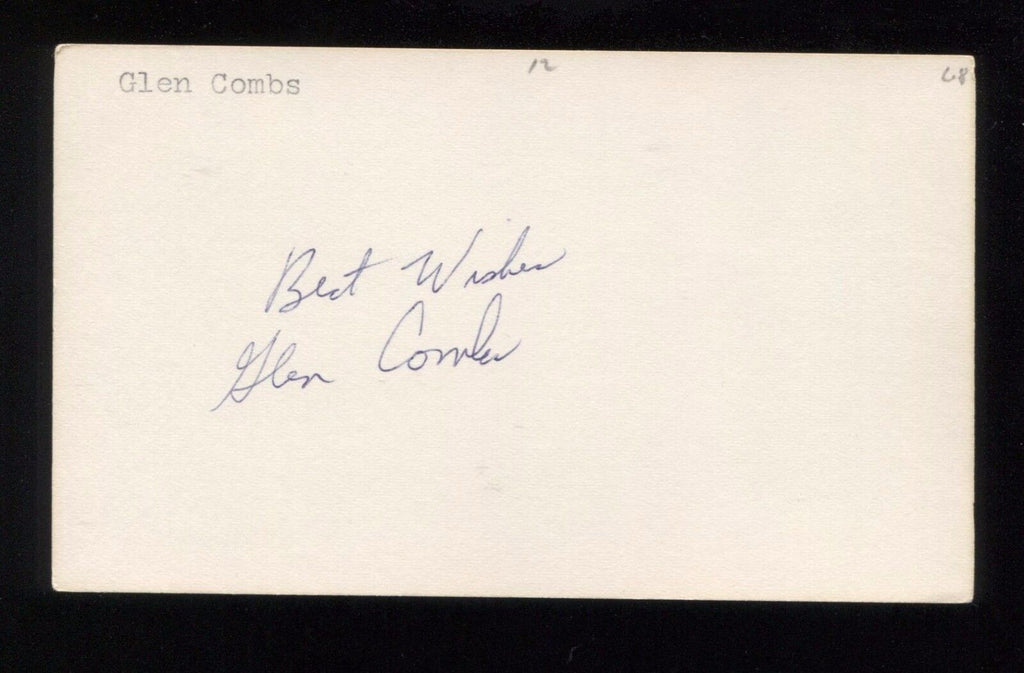 Glen Combs
12
68
Best Wishes
Glen Combs